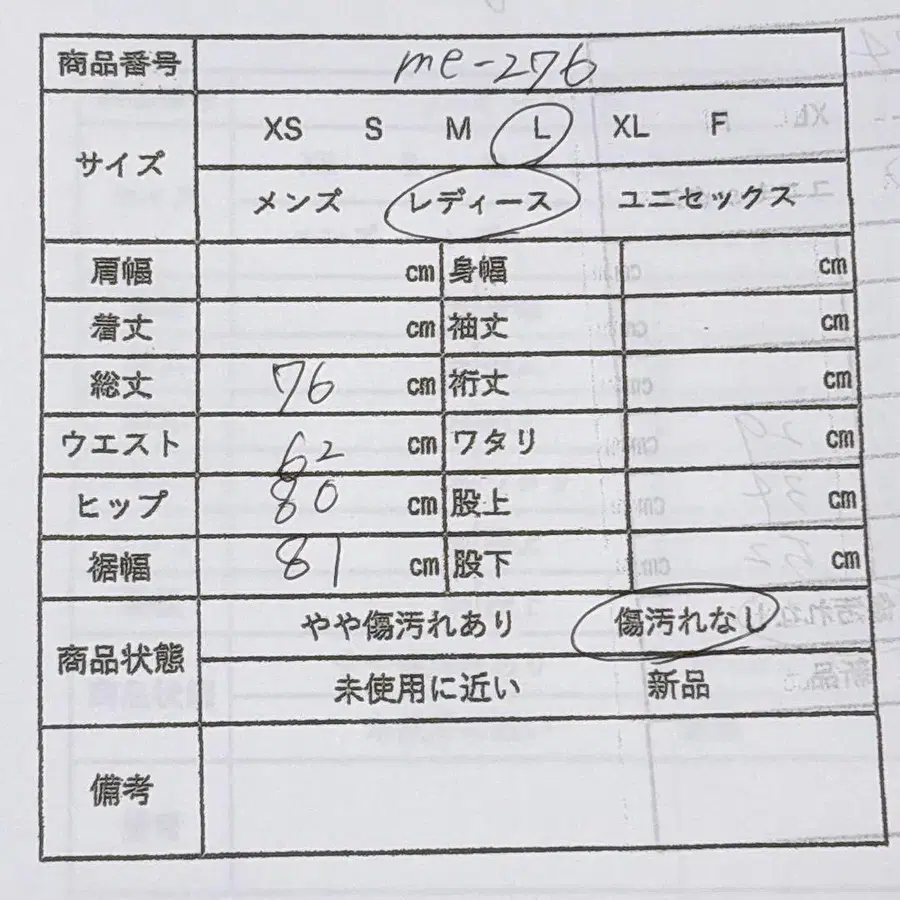 商品番号 me-276
サイズ XS S M L XL F
メンズ レディース ユニセックス
肩幅 cm 身幅 cm
着丈 cm 袖丈 cm
総丈 76 cm 裄丈 cm
ウエスト 62 cm ワタリ cm
ヒップ 80 cm 股上 cm
裾幅 81 cm 股下 cm
商品状態 やや傷汚れあり 傷汚れなし
未使用に近い 新品
備考